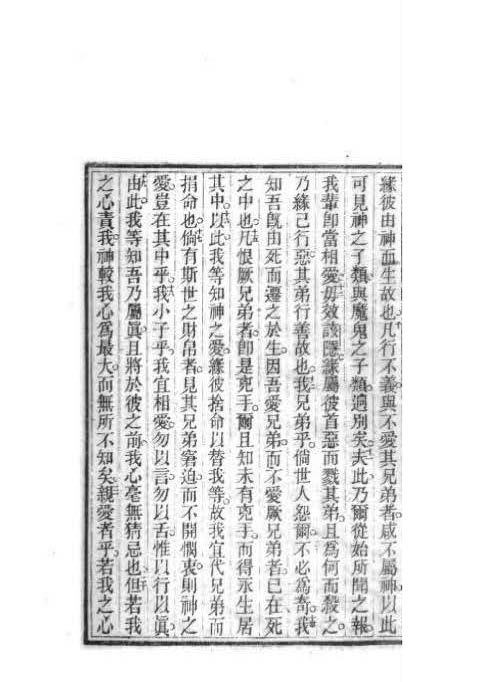 緣彼由神而生故也凡行不義與不愛其兄弟者咸不屬神以此
可見神之子類與魔鬼之子類逈別矣夫此乃爾從始所聞之報
我輩卽當相愛毋效該隱緣屬彼首惡而戮其弟且爲何而殺之
乃緣己行惡其弟行善故也我兄弟乎倘世人怨爾不必爲奇我
知吾旣由死而遷之於生因吾愛兄弟而不愛厥兄弟者已在死
之中也凡恨厥兄弟者卽是兇手爾且知未有兇手而得永生居
其中以此我等知神之愛緣彼捨命以替我等故我宜代兄弟而
捐命也倘有斯世之財帛者見其兄弟窘迫而不開憫衷則神之
愛豈在其中乎我小子乎我宜相愛勿以言勿以舌惟以行以眞
由此我等知吾乃屬眞且將於彼之前我心毫無猜忌也但若我
之心責我神較我心爲最大而無所不知矣親愛者乎若我之心